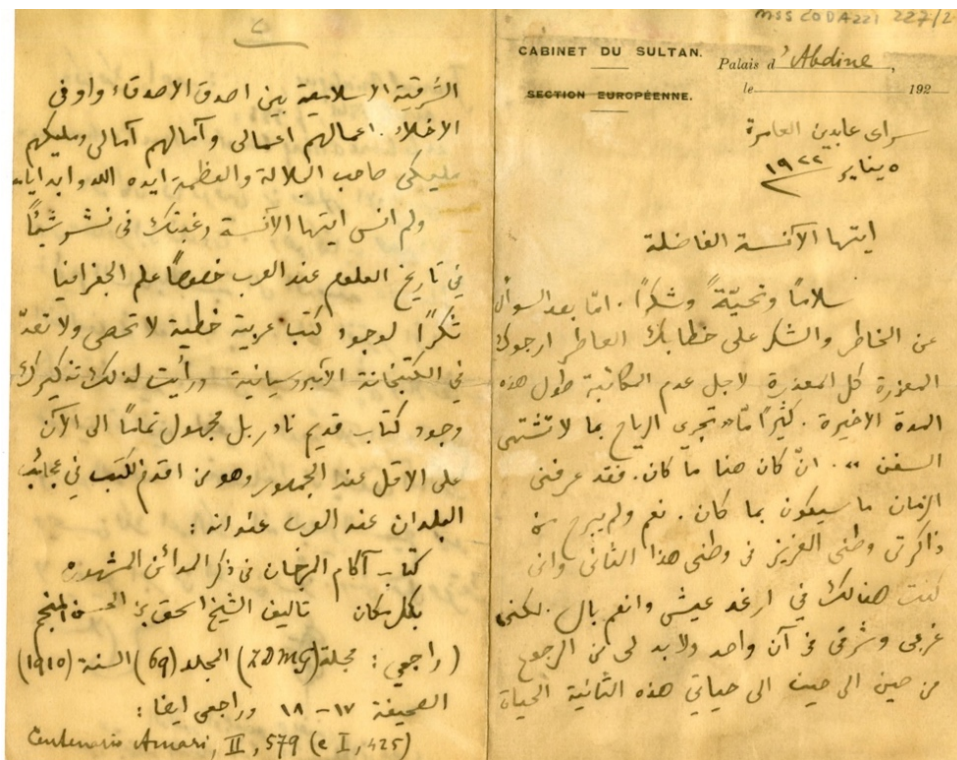 MSS CODAZZI 227/2
CABINET DU SULTAN.
SECTION EUROPÉENNE.
Palais d'Abdine,
le 192
سراى عابدين العامرة
٥ يناير ١٩٢٢
ايتها الآنسة الفاضلة
سلاماً وتحيّةً وشكراً. امّا بعد السوأل
عن الخاطر والشكر على خطابك العاطر ارجوك
المعزرة كل المعذرة لاجل عدم المكاتبة طول هذه
المدة الاخيرة. كثيراً مّا «تجرى الرياح بما لا تشتهى
السفن». انّ كان هنا ما كان. فقد عرفنى
الزمان ما سيكون بما كان. نعم ولم يبرح من
ذاكرتى وطنى العزيز فى وطنى هذا الثانى وانى
كنت هنالك في ارغد عيش وانعم بال. لكنى
غربى وشرقى فى آن واحد ولا بد لى من الرجوع
من حين الى حين الى حياتي هذه الثانية الحياة
٢
الشرقية الاسلامية بين اصدق الاصدقاء واوفى
الاخلاء. اعمالهم اعمالى وآمالهم آمالى ومليكهم
مليكى صاحب الجلالة والعظمة ايده الله وابد ايامه
ولم انس ايتها الآنسة رغبتك فى نشر شيئاً
في تاريخ العلوم عند العرب خصوصاً علم الجغرافيا
شكراً لوجود كتب عربية خطية لا تحصى ولا تعدّ
في الكتبخانة الأمبروسيانية ورأيت لذلك تذكيرك
وجود كتاب قديم نادر بل مجهول تماماً الى الآن
على الاقل عند الجمهور وهو من اقدم الكتب في عجائب
البلدان عند العرب عنوانه:
كتاب آكام المرجان فى ذكر المدائن المشهوره
بكل مكان تاليف الشيخ اسحق بن الحسين المنجم
(راجعي: مجلة (ZDMG) المجلد (69) السنة (1915)
الصحيفة ١٧-١٨ وراجعى ايضا:
Centenario Amari, II, 579 (e I, 425)